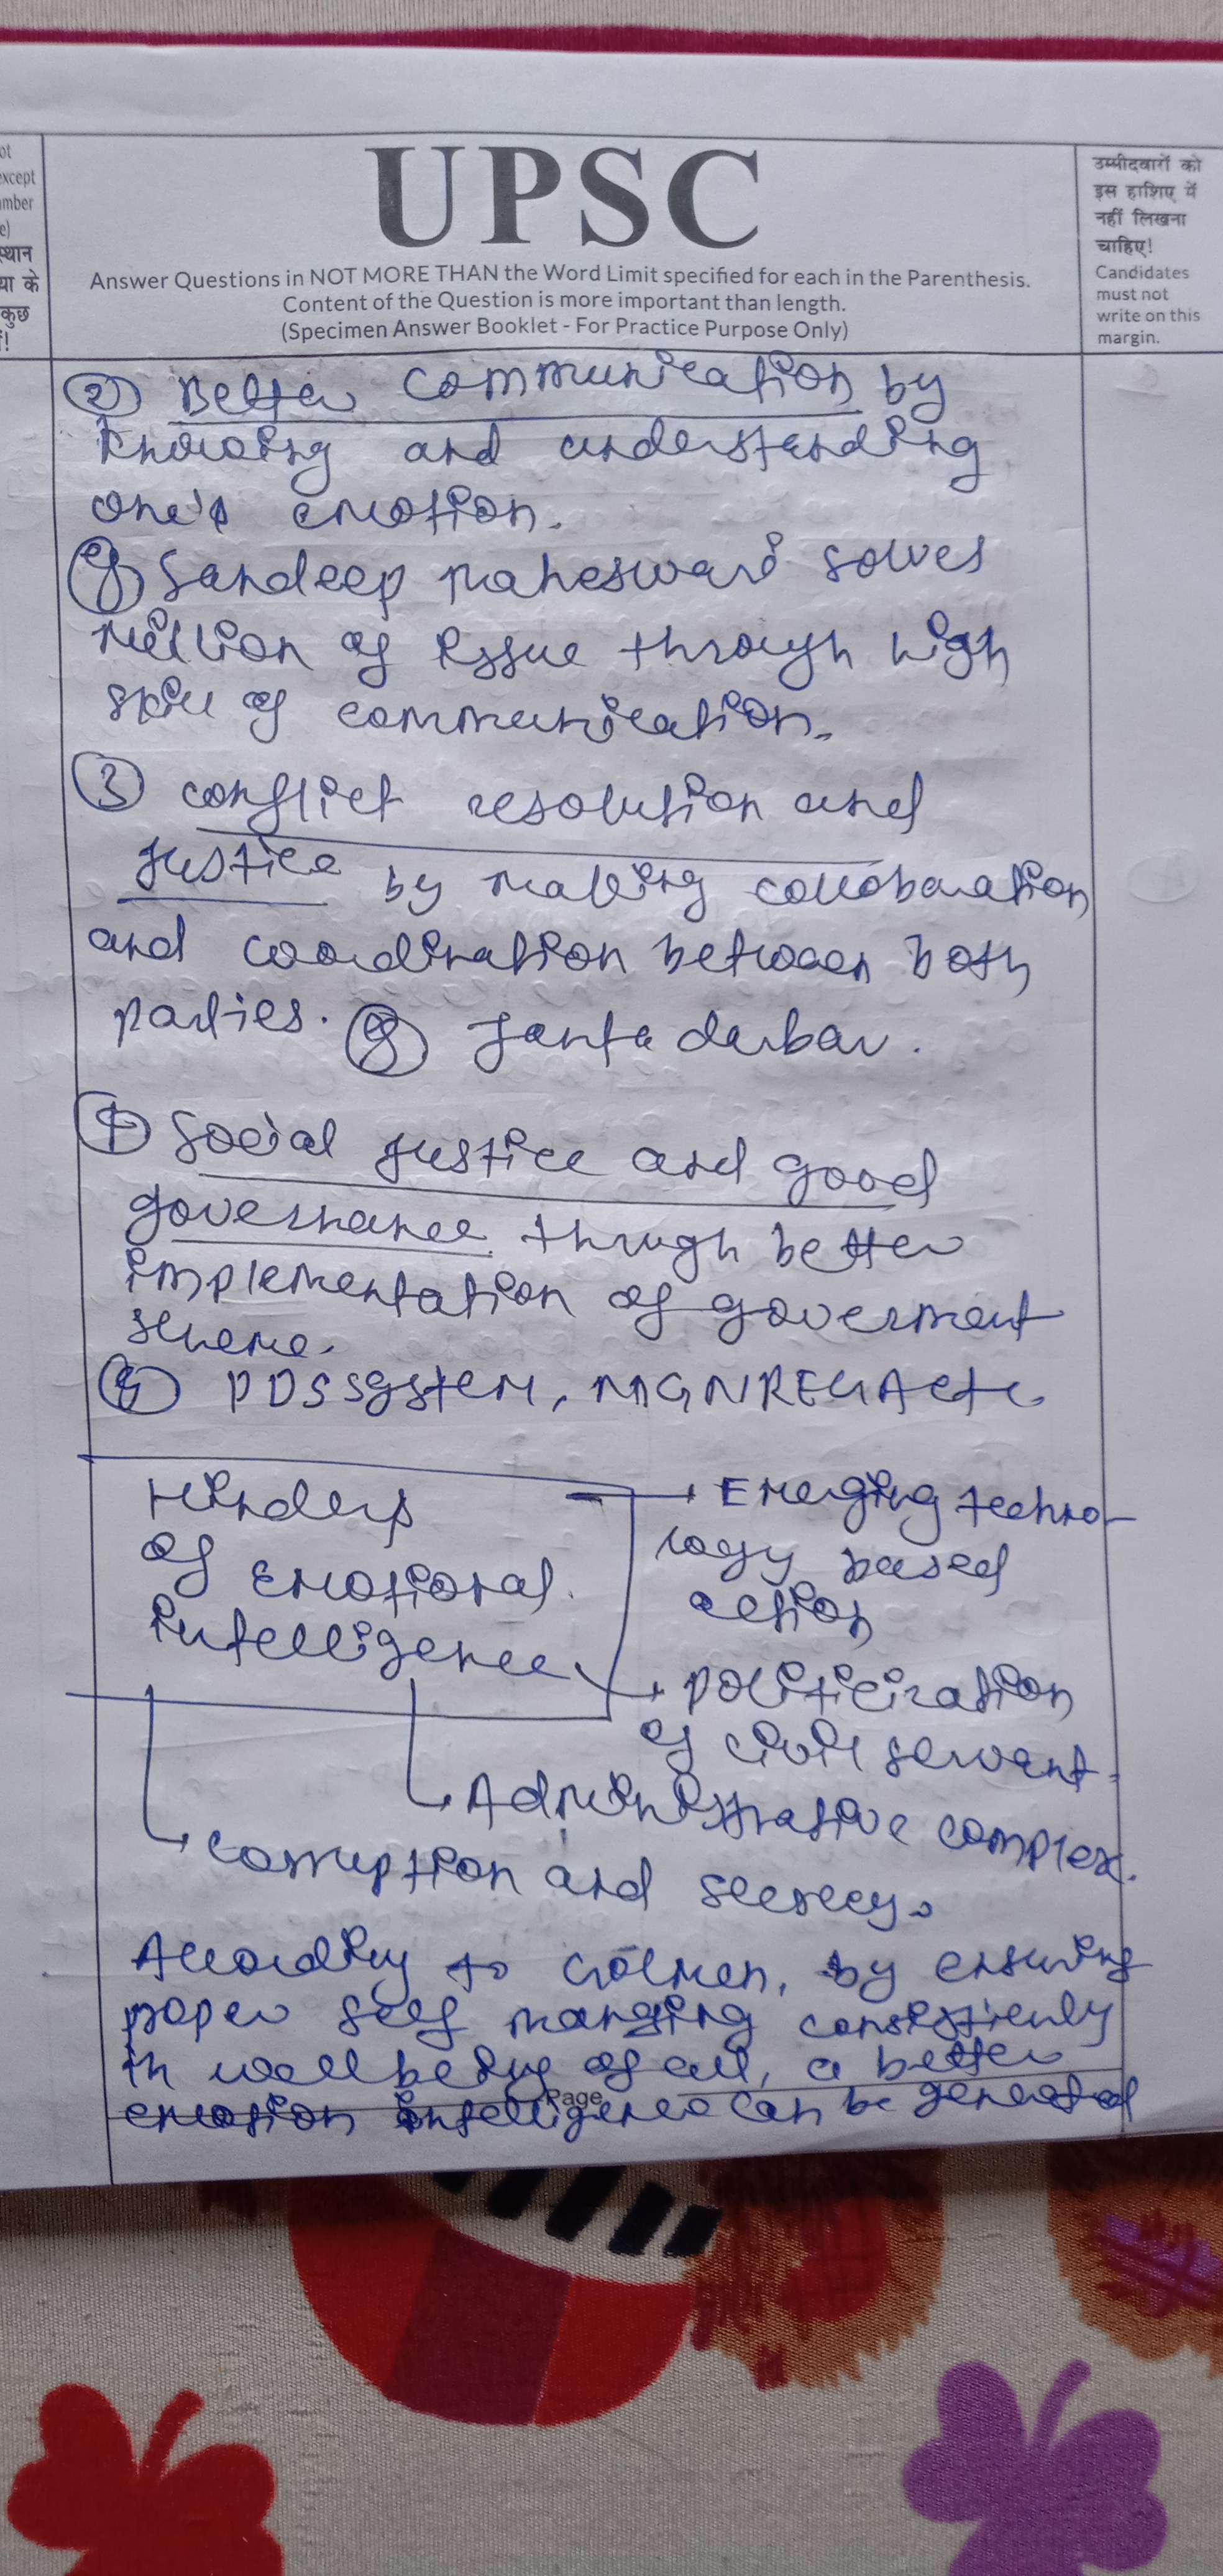 ot
except
mber
e)
स्थान
या के
कुछ
!
UPSC
Answer Questions in NOT MORE THAN the Word Limit specified for each in the Parenthesis.
Content of the Question is more important than length.
(Specimen Answer Booklet - For Practice Purpose Only)
उम्मीदवारों को
इस हाशिए में
नहीं लिखना
चाहिए!
Candidates
must not
write on this
margin.
② Better communication by
knowing and understanding
one's emotion.
eg Sandeep maheswari solves
million of issue through high
skill of communication.
③ conflict resolution and
justice by making collobaration
and coordination between both
parties. eg Janta darbar.
④ Social justice and good
governance through better
implementation of goverment
scheme.
eg PDS system, MGNREGA etc.
Hinders
of Emotional
intelligence
Emerging techno-
logy based
action
politicization
of civil servant.
Administrative complex.
corruption and secrecy.
According to Golmen, by ensuring
proper self manging consistienly
in well being of all, a better
emotion intelligence can be generated
Page